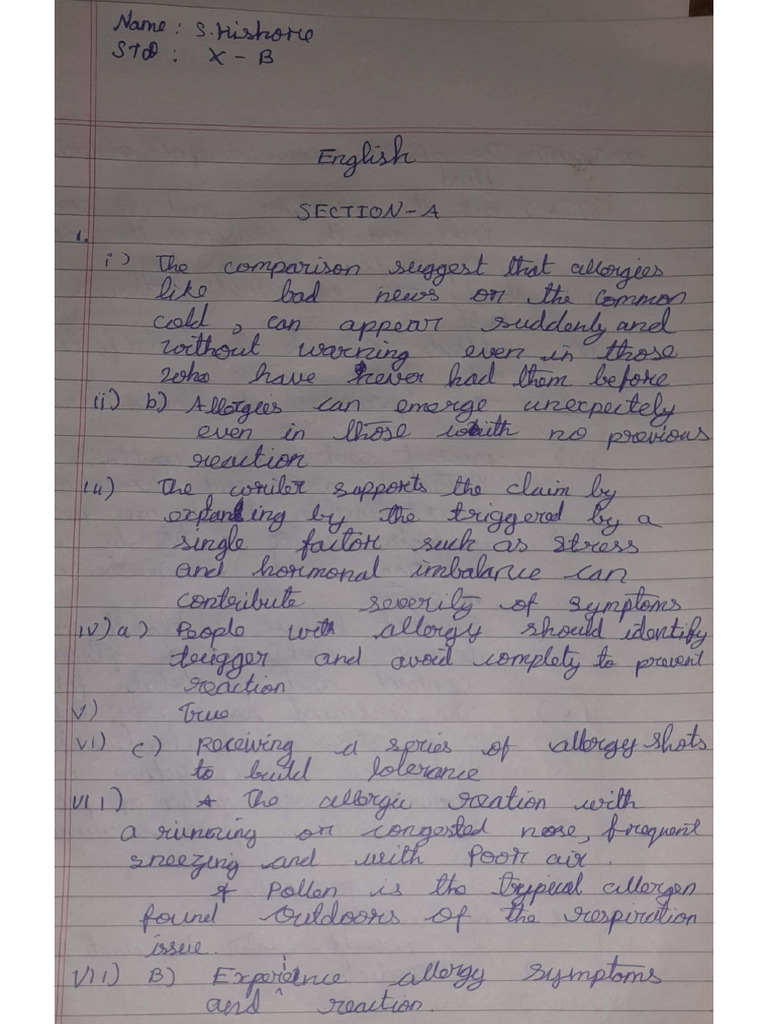 Name : S. Kishore
STD : X - B
English
SECTION-A
1.
i) The comparison suggest that allergies
like bad news or the common
cold, can appear suddenly and
without warning even in those
who have never had them before
(ii) b) Allergies can emerge unexpectely
even in those with no previous
reaction
iii) The writer supports the claim by
by the triggered by a
single factor such as stress
and hormonal imbalance can
contribute severity of symptoms
iv) a) People with allergy should identify
trigger and avoid complety to prevent
reaction
v) True
vi) c) Receiving a series of allergy shots
to build tolerance
vii) * The allergic reation with
a running or congested nose, frequent
sneezing and with Poor air.
* Pollen is the typical allergen
found Outdoors of the respiration
issue.
vii) B) Experience allergy symptoms
and reaction.